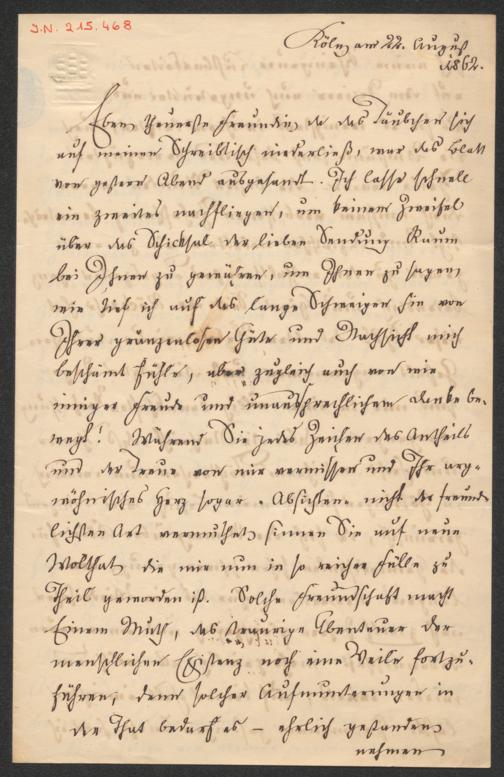 J.N. 215.468
Köln, am 22. August
1862.
Eben, theuerste Freundin, da das Täubchen sich
auf meinen Schreibtisch niederließ, war das Blatt
von gestern Abend ausgesandt. Ich lasse schnell
ein zweites nachfliegen, um keinem Zweifel
über das Schicksal der lieben Sendung Raum
bei Ihnen zu gewähren, um Ihnen zu sagen,
wie tief ich auf das lange Schweigen hin von
Ihrer gränzenlosen Güte und Nachsicht mich
beschämt fühle, aber zugleich auch von wie
inniger Freude und unaussprechlichem Danke be-
wegt! Während Sie jedes Zeichen des Antheils
und der Treue von mir vermissen und Ihr arg-
wöhnisches Herz sogar Absichten nicht der freund-
lichsten Art vermuthet, sinnen Sie auf neue
Wolthat, die mir nun in so reicher Fülle zu
Theil geworden ist. Solche Freundschaft macht
Einem Muth, das traurige Abenteuer der
menschlichen Existenz noch eine Weile fortzu-
führen; denn solcher Aufmunterungen in
der That bedarf es – ehrlich gestanden
nehmen